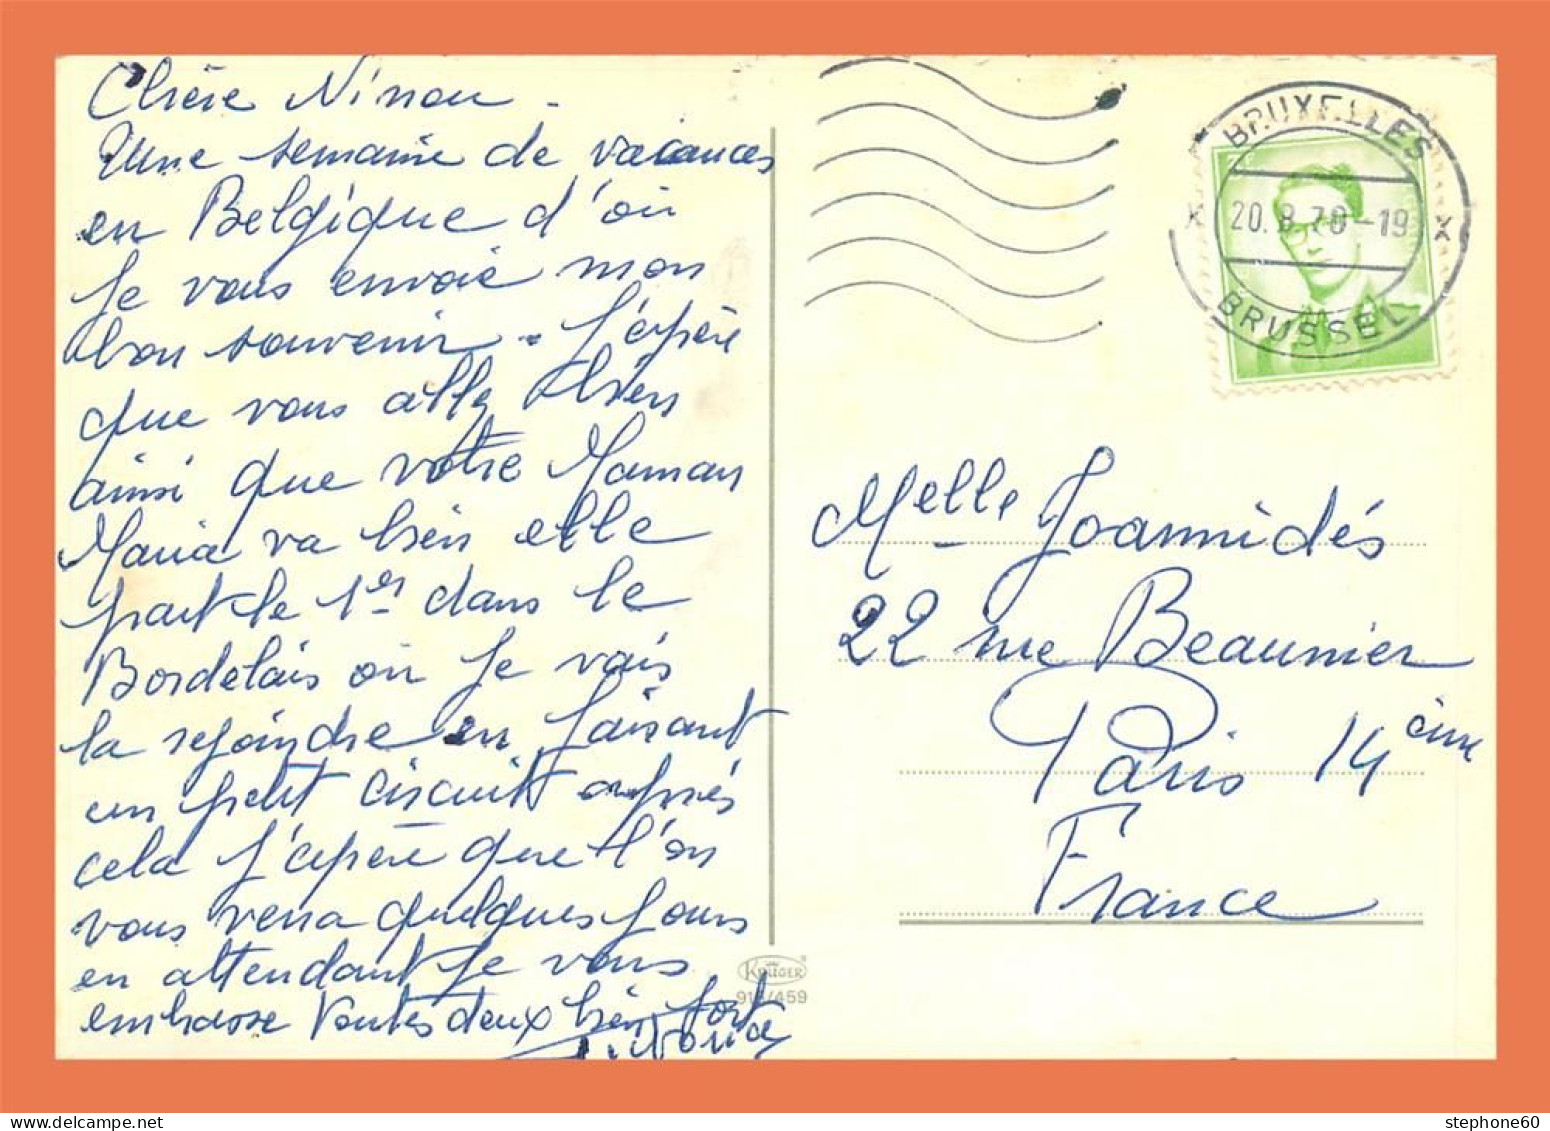 Chère Ninou -
Une semaine de vacances
en Belgique d'où
je vous envoie mon
bon souvenir - J'espère
que vous allez bien
ainsi que votre Maman
Maria va bien elle
part le 1er dans le
Bordelais où je vais
la rejoindre en faisant
un petit circuit après
cela j'espère que l'on
vous verra quelques jours
en attendant je vous
embrasse toutes deux bien fort
BRUXELLES
20.8.70-19
BRUSSEL
Melle Joannidés
22 rue Beaunier
Paris 14ème
France
KRÜGER
/459
stephone60